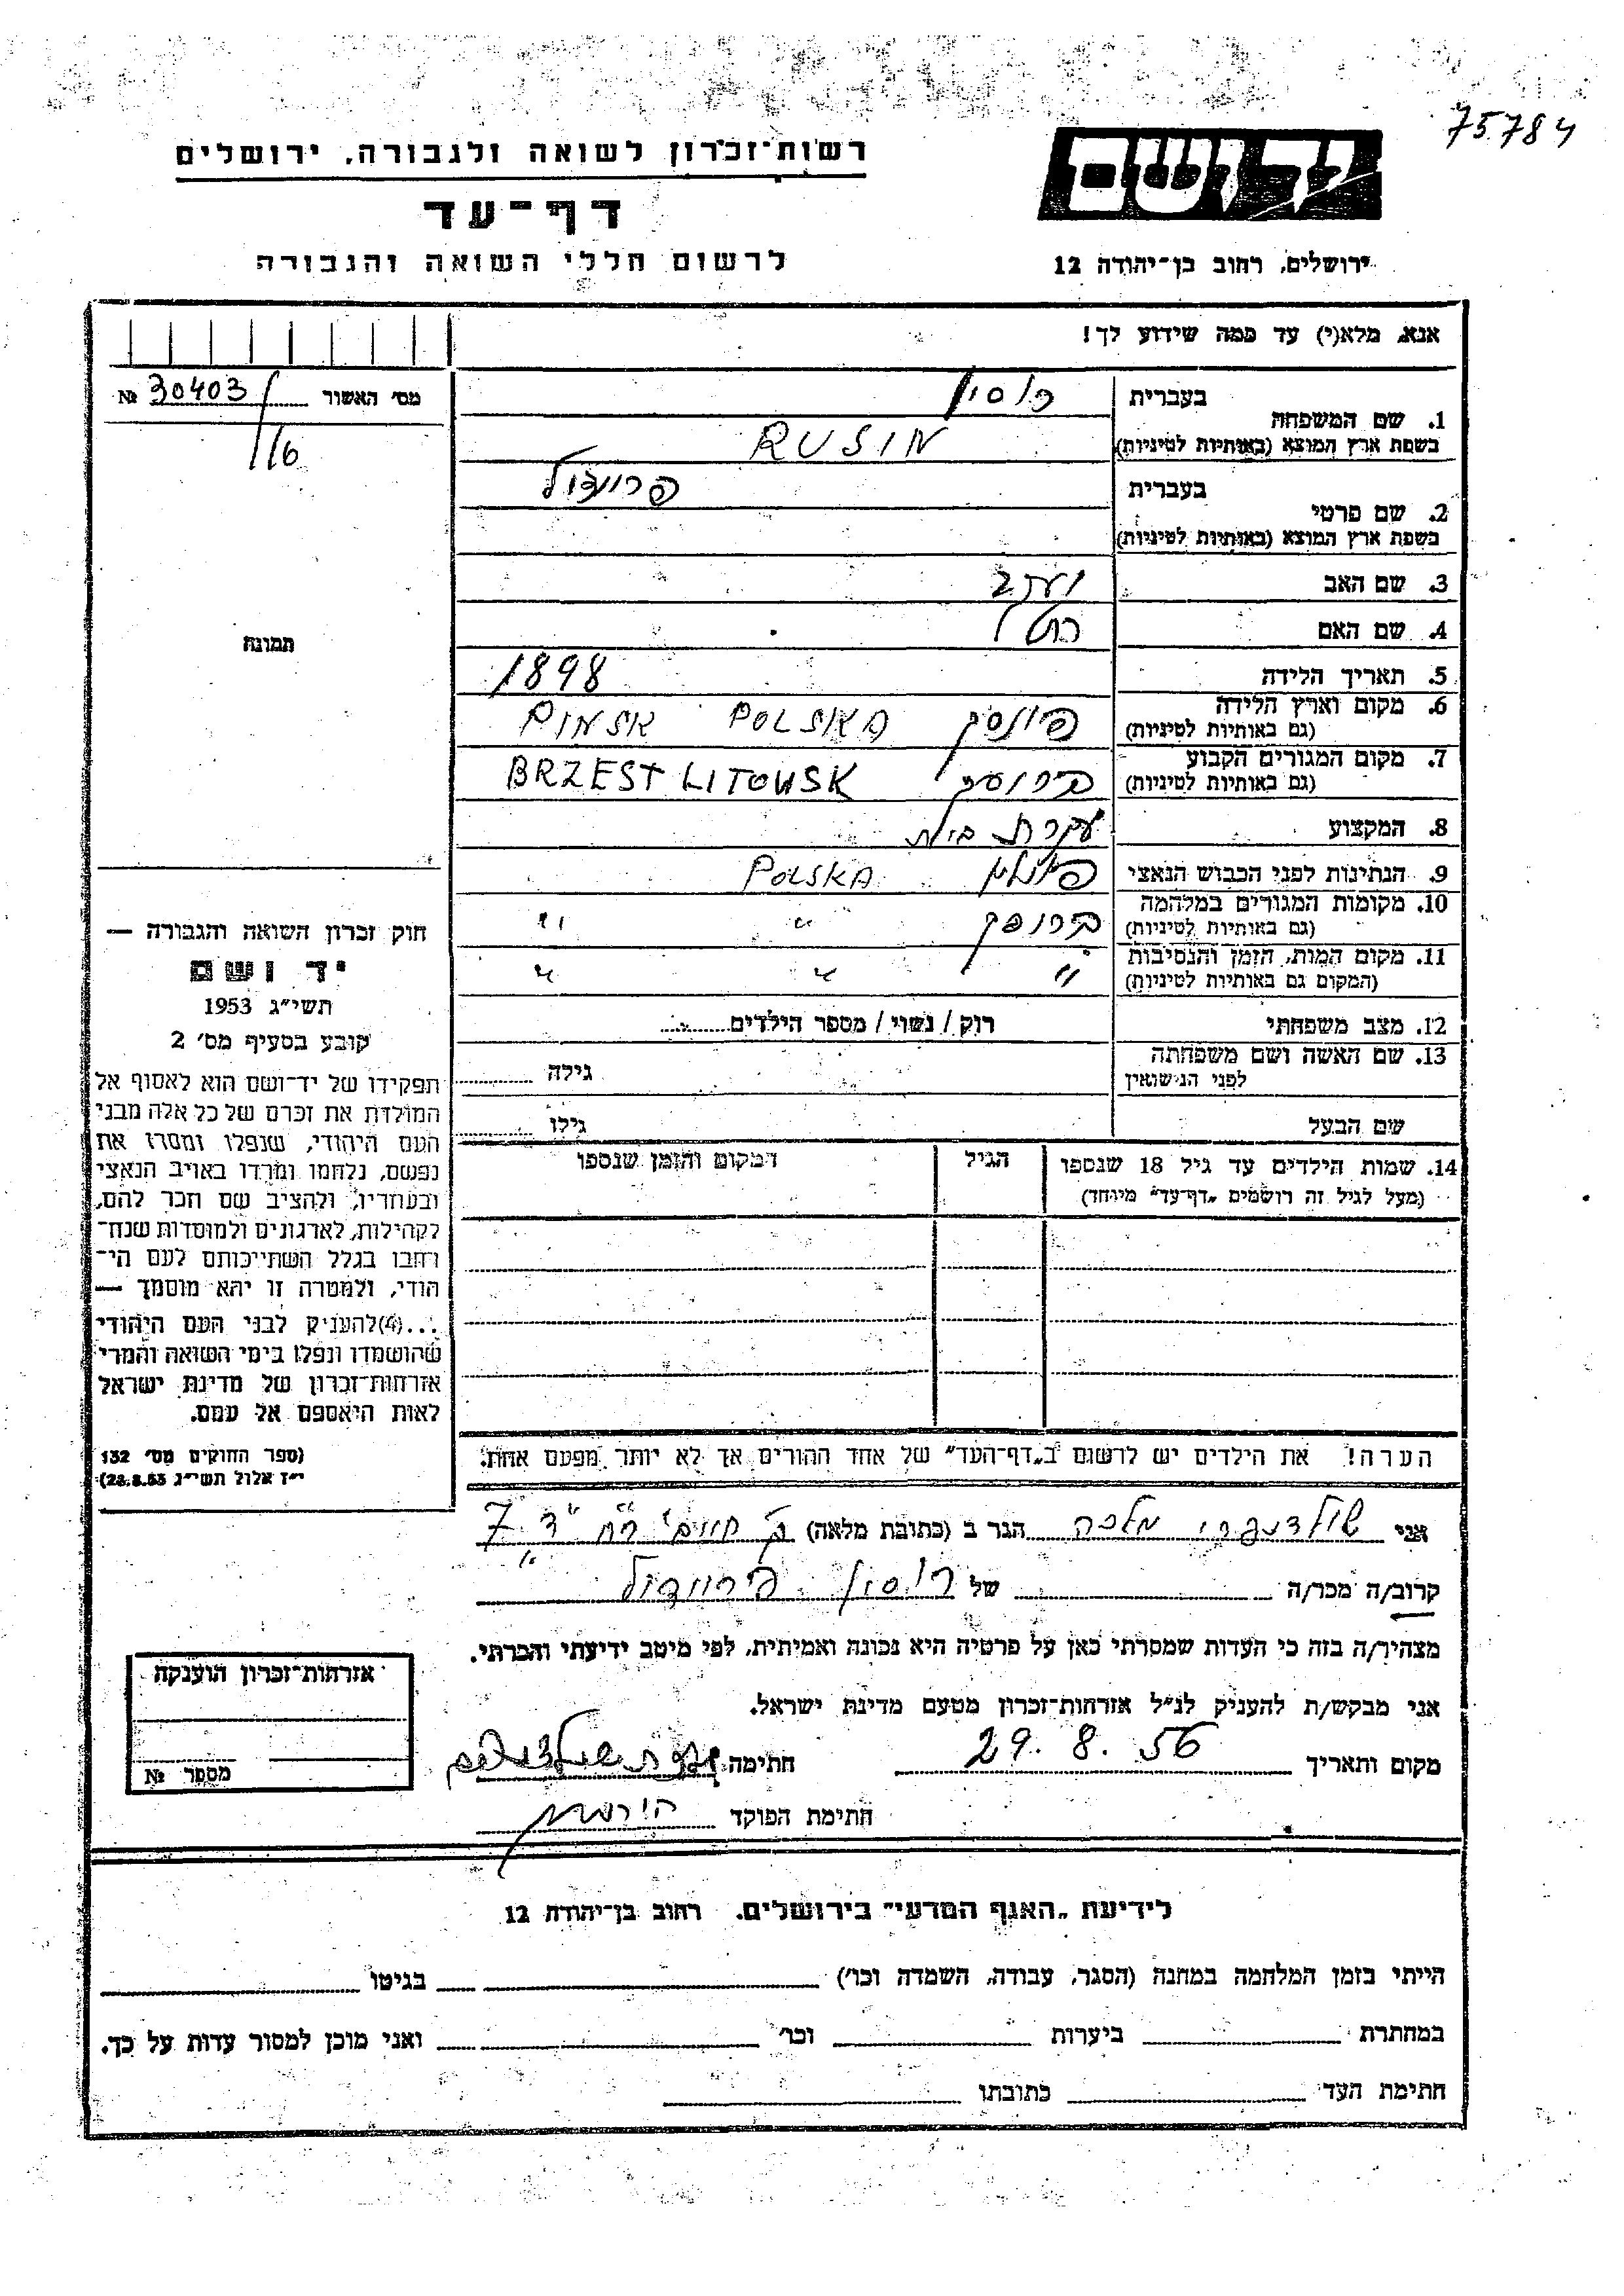 75784
רשות־זכרון לשואה ולגבורה, ירושלים
יד ושם
דף־עד
לרשום חללי השואה והגבורה
ירושלים, רחוב בן־יהודה 12
אנא, מלא(י) עד כמה שידוע לך!
מס' האשור 30403 №
116
1. שם המשפחה בעברית רוסין
בשפת ארץ המוצא (באותיות לטיניות) RUSIN
2. שם פרטי בעברית פריידל
בשפת ארץ המוצא (באותיות לטיניות)
3. שם האב
4. שם האם
5. תאריך הלידה 1898
6. מקום וארץ הלידה (גם באותיות לטיניות) פינסק POLSKA PINSK
7. מקום המגורים הקבוע (גם באותיות לטיניות) בריסק BRZEST LITOWSK
8. המקצוע עקרת בית
9. הנתינות לפני הכבוש הנאצי פולין POLSKA
10. מקומות המגורים במלחמה (גם באותיות לטיניות) בריסק " "
11. מקום המות, הזמן והנסיבות (המקום גם באותיות לטיניות) " " "
12. מצב משפחתי רוק / נשוי / מספר הילדים
13. שם האשה ושם משפחתה לפני הנישואין גילה
שם הבעל גילו
14. שמות הילדים עד גיל 18 שנספו הגיל המקום והזמן שנספו
(מעל לגיל זה רושמים „דף־עד" מיוחד)
תמונה
חוק זכרון השואה והגבורה —
יד ושם
תשי"ג 1953
קובע בסעיף מס' 2
תפקידו של יד־ושם הוא לאסוף אל
המולדת את זכרם של כל אלה מבני
העם היהודי, שנפלו ומסרו את
נפשם, נלחמו ומרדו באויב הנאצי
ובעוזריו, ולהציב שם וזכר להם,
לקהילות, לארגונים ולמוסדות שנח־
רבו בגלל השתייכותם לעם הי־
הודי, ולמטרה זו יהא מוסמך —
...(4) להעניק לבני העם היהודי
שהושמדו ונפלו בימי השואה והמרי
אזרחות־זכרון של מדינת ישראל
לאות היאספם אל עמם.
(ספר החוקים מס' 132
י"ז אלול תשי"ג 28.8.53)
הערה! את הילדים יש לרשום ב„דף־העד" של אחד ההורים אך לא יותר מפעם אחת.
אני מלכה הגר ב (כתובת מלאה) ק' חיים 7
קרוב/ה מכר/ה של רוסין פריידל
מצהיר/ה בזה כי העדות שמסרתי כאן על פרטיה היא נכונה ואמיתית, לפי מיטב ידיעתי והכרתי.
אני מבקש/ת להעניק לנ"ל אזרחות־זכרון מטעם מדינת ישראל.
מקום ותאריך 29. 8. 56 חתימה
חתימת הפוקד
אזרחות־זכרון הוענקה
מספר №
לידיעת „האגף המדעי" בירושלים, רחוב בן־יהודה 12
הייתי בזמן המלחמה במחנה (הסגר, עבודה, השמדה וכו') בגיטו
במחתרת ביערות וכו' ואני מוכן למסור עדות על כך.
חתימת העד כתובתו